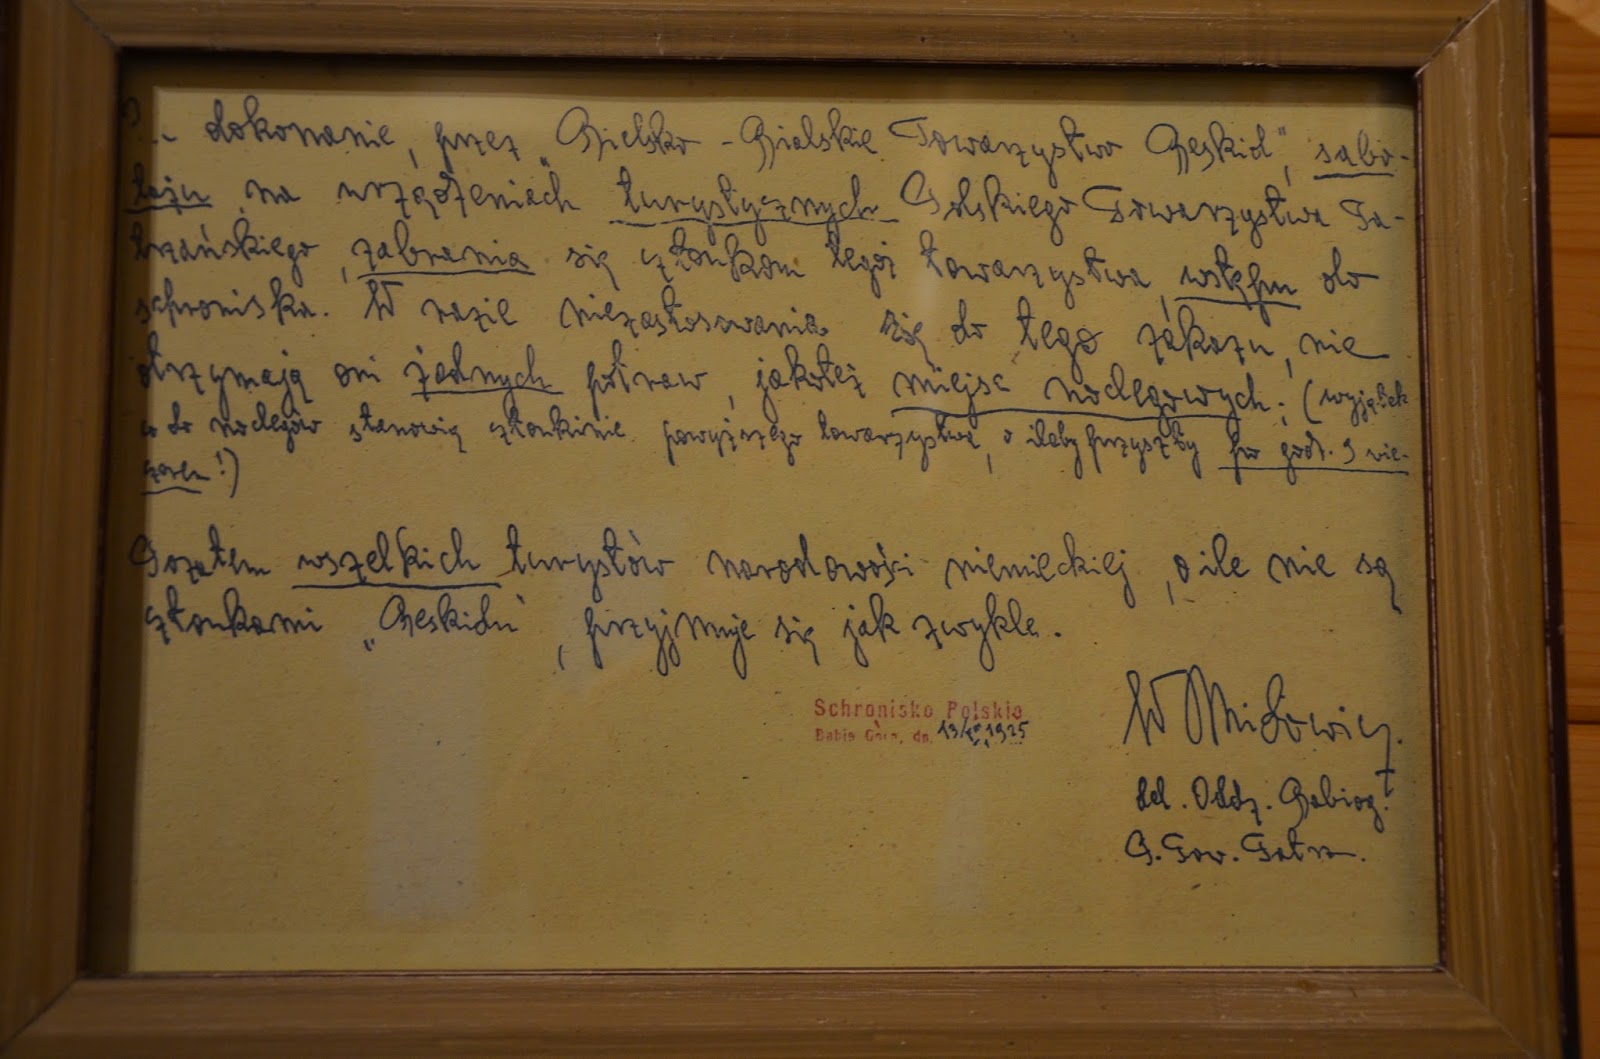 dokonanie, przez „Bielsko - Bialskie Towarzystwo Beskid", sabo-
tażu na urządzeniach turystycznych Polskiego Towarzystwa Ta-
trzańskiego, zabrania się członkom tegoż towarzystwa, wstępu do
schroniska. W razie niezastosowania się do tego zakazu, nie
otrzymają oni żadnych potraw, jakoteż miejsc noclegowych; (wyjątek
co do noclegów stanowią członkinie powyższego towarzystwa, o ileby przyszły po godz. 9 wie-
czorem!)
Pozatem wszelkich turystów narodowości niemieckiej, o ile nie są
członkami „Beskidu", przyjmuje się jak zwykle.
Schronisko Polskie
Babia Góra, dn. 1925
W Midowicz.
del. Oddz. Babiog.
P. Tow. Tatrz.